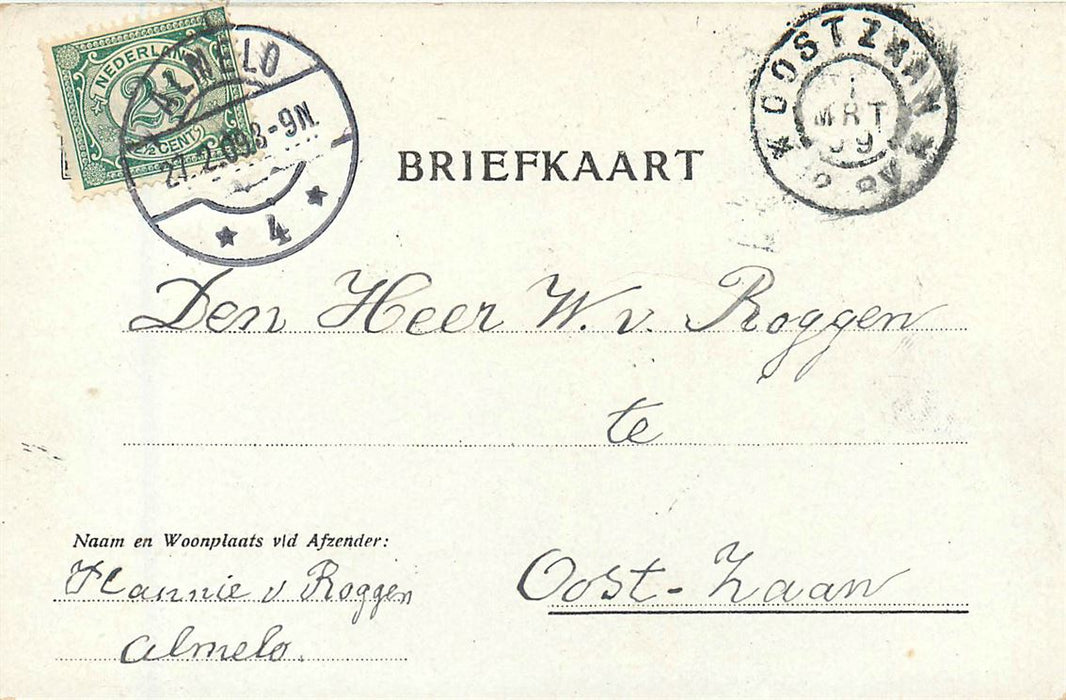 NEDERLAND
2½
CENT
ALMELO
27.2.09.8-9N.
4
OOSTZAAN
1
MRT
09
BRIEFKAART
Den Heer W. v. Roggen
te
Naam en Woonplaats v/d Afzender:
Hannie v Roggen
Almelo.
Oost-Zaan